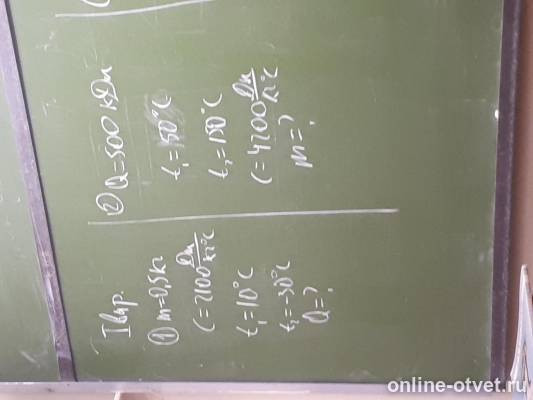 I вар.
① m=0,5кг
C=2100 Дж/кг°С
t₁=10°C
t₂=-30°C
Q=?
② Q=500 кДж
t₁=50°C
t₂=150°C
C=4200 Дж/кг°С
m=?
online-otvet.ru